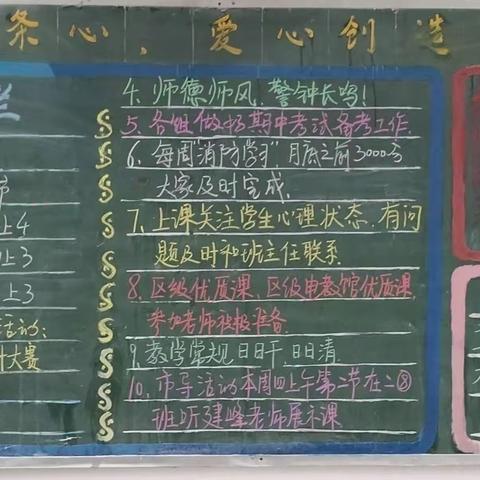 条心、爱心创造
栏
4. 师德师风,警钟长鸣!
5. 各组做好期中考试备考工作.
6. 每周"消防学习",月底之前3000分
大家及时完成.
7. 上课关注学生心理状态,有问
题及时和班主任联系.
8. 区级优质课、区级电教馆优质课
参加老师积极准备.
9. 教学常规日日干,日日清.
10. 市导活动本周四上午第二节在二⑧
班听建峰老师展示课
上4
上3
上3
活动:
计大赛